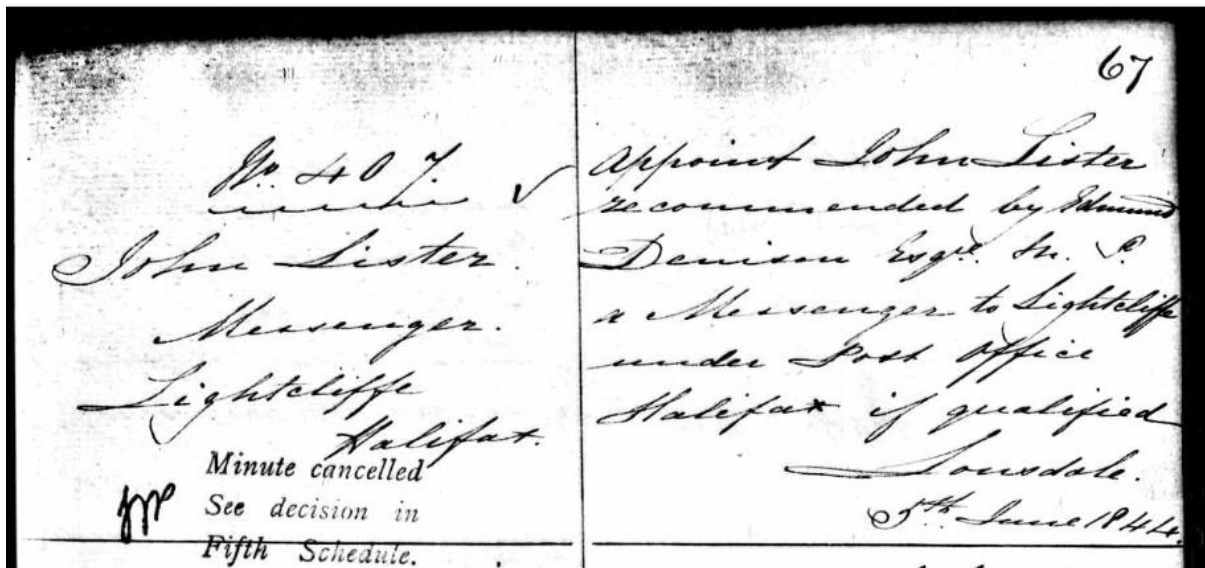 67
No. 407.
John Lister.
Messenger.
Lightcliffe
Halifax.
Minute cancelled
See decision in
Fifth Schedule.
Appoint John Lister
recommended by Edmund
Denison Esqre. M. P.
a Messenger to Lightcliffe
under Post Office
Halifax if qualified
Lonsdale.
5th June 1844.